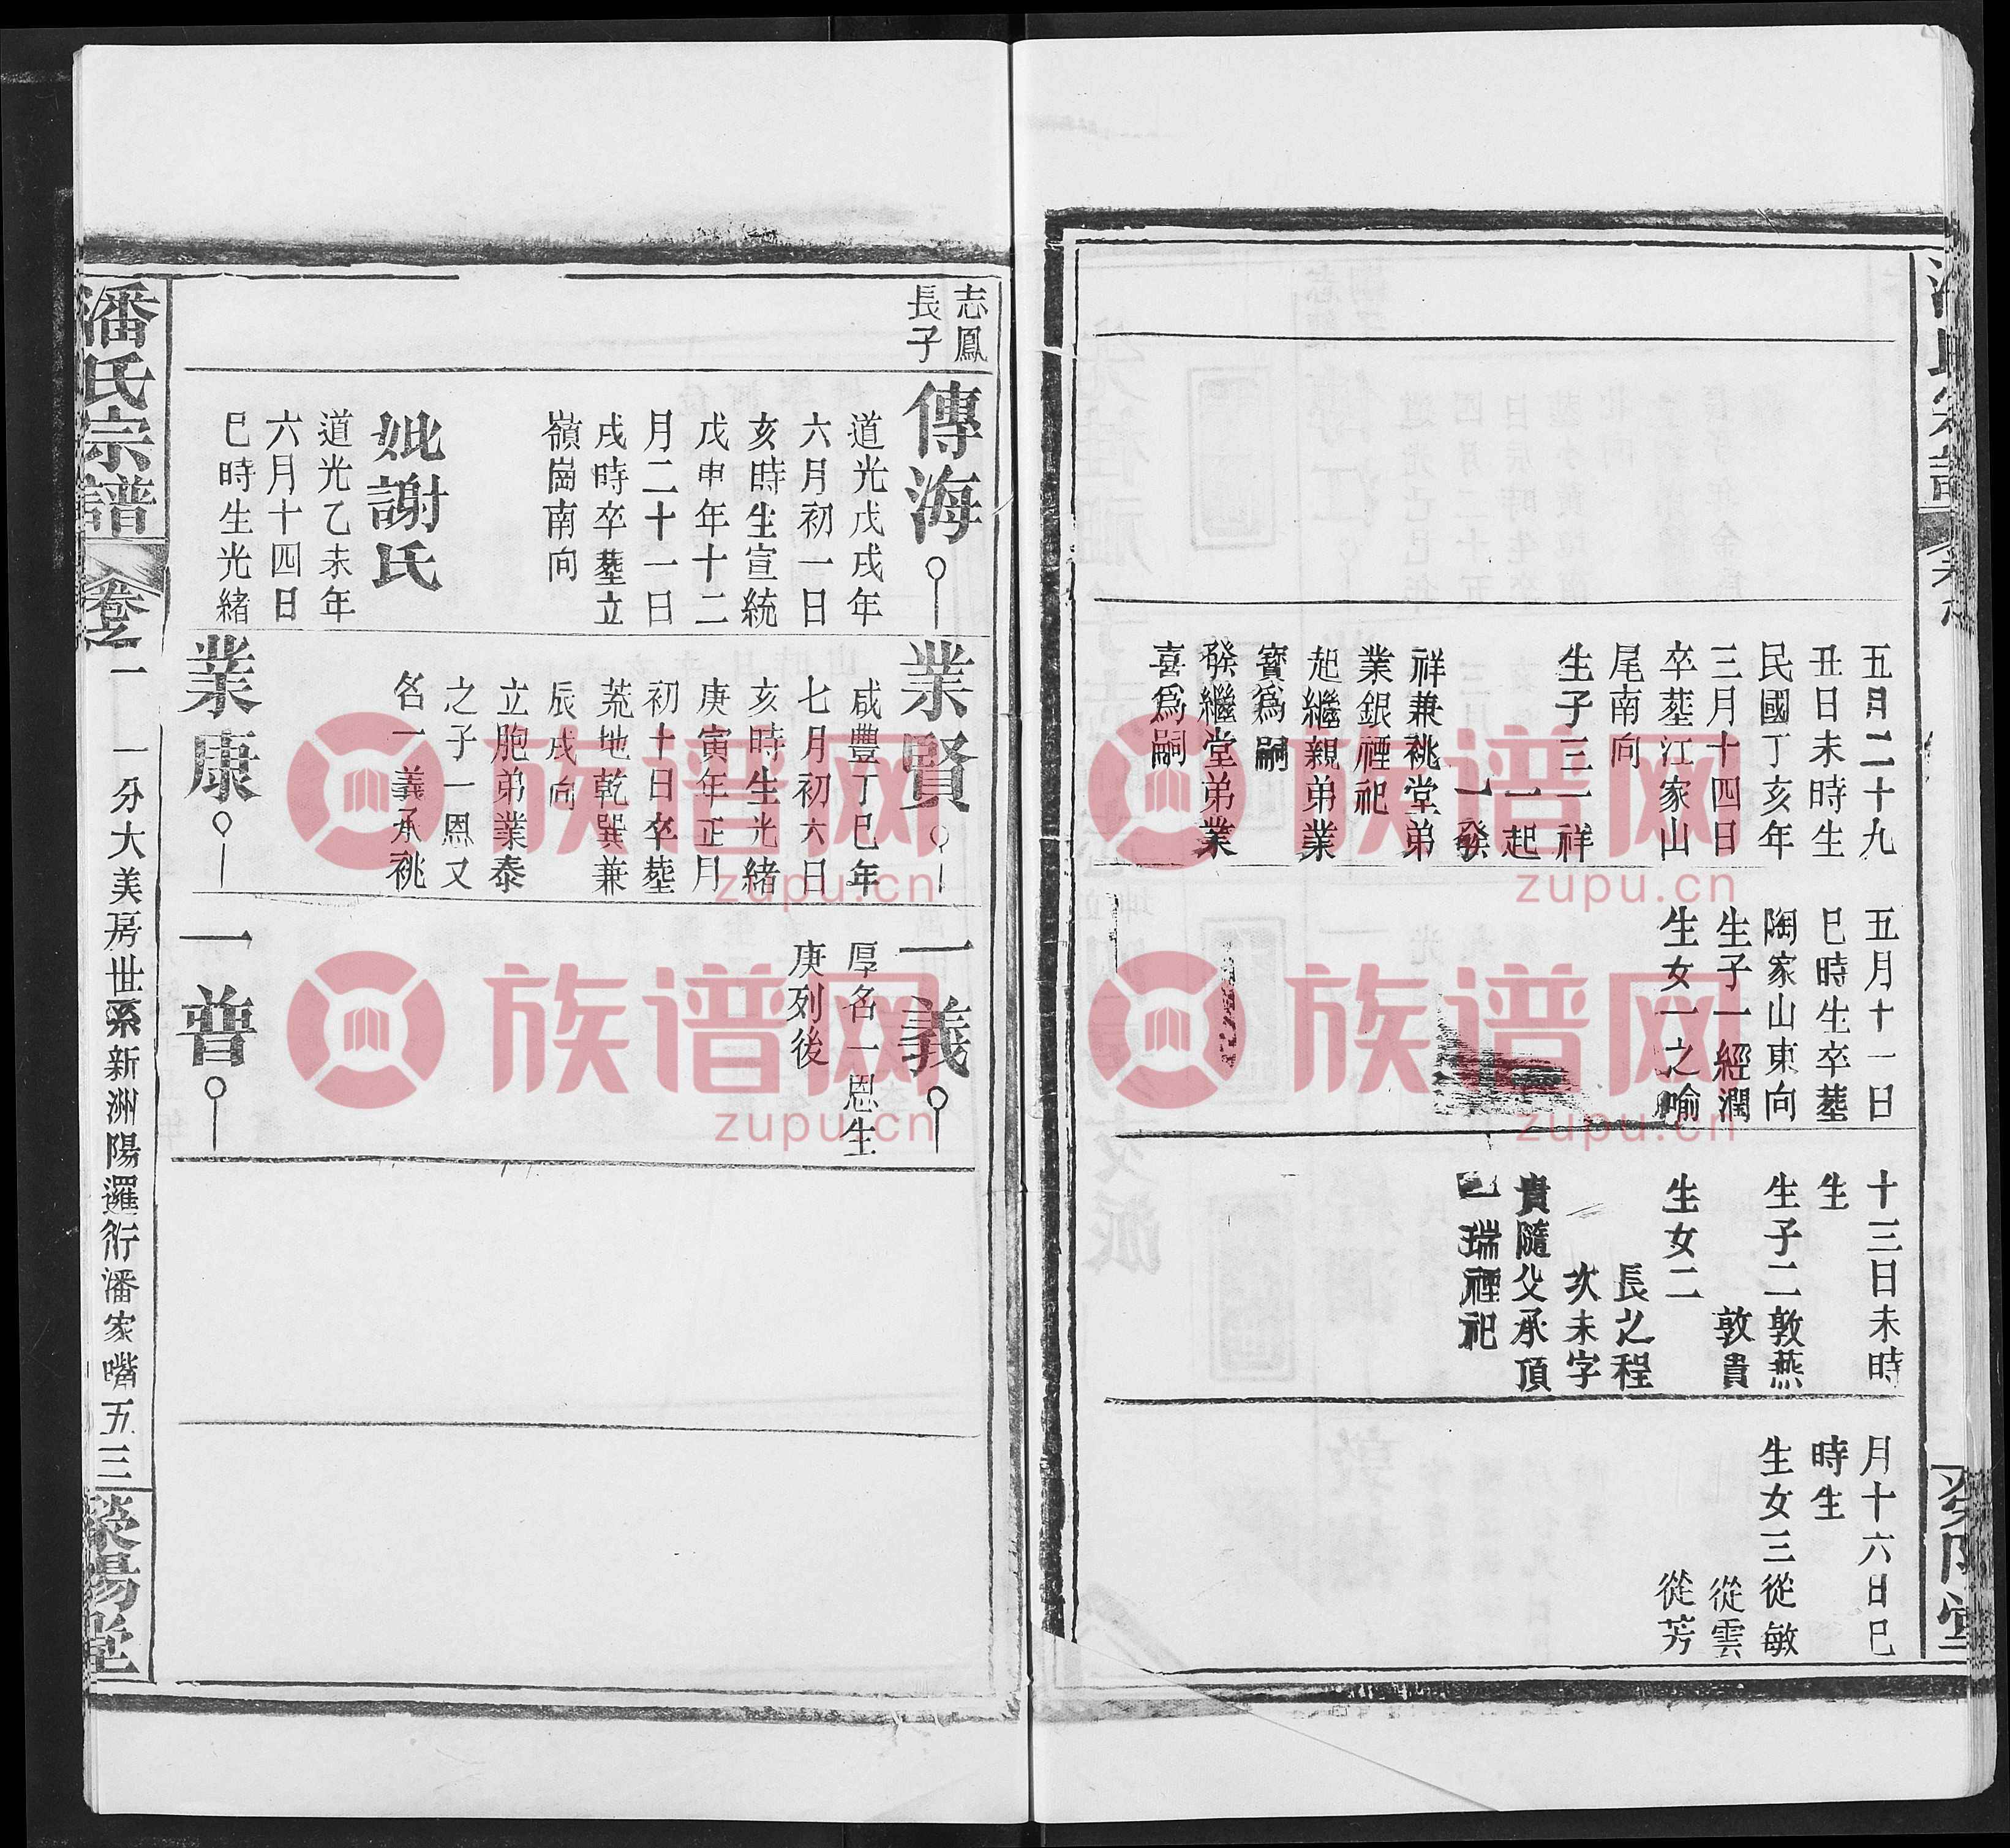 五月二十九
丑日未時生
民國丁亥年
三月十四日
卒塟江家山
尾南向
生子三一祥
一起
一發
祥兼祧堂弟
業銀禋祀
起繼親弟業
寶爲嗣
發繼堂弟業
喜爲嗣
五月十一日
巳時生卒塟
陶家山東向
生子一經潤
生女一之喻
十三日未時
生
生子二敦燕
敦貴
生女二
長之程
次未字
貴隨父承頂
瑞禋祀
月十六日巳
時生
生女三從敏
從雲
從芳
志鳳
長子
傳海
道光戊戌年
六月初一日
亥時生宣統
戊申年十二
月二十一日
戌時卒塟立
嶺崗南向
妣謝氏
道光乙未年
六月十四日
巳時生光緒
業賢
咸豐丁巳年
七月初六日
亥時生光緒
庚寅年正月
初十日卒塟
荒地乾巽兼
辰戌向
立胞弟業泰
之子一恩又
名一義承祧
業康
一義
厚名一恩生
庚列後
一普
潘氏宗譜
卷之一
一分大美房世系新洲陽邏街潘家嘴五
三
滎陽堂
族谱网
zupu.cn
族谱网
zupu.cn
族谱网
zupu.cn
族谱网
zupu.cn